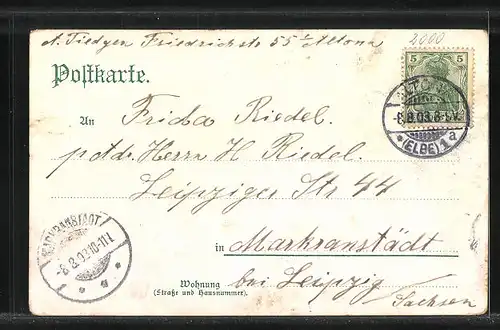 A. Tiedgen Friedrichstr 55 I Altona
2000
5 5
Postkarte.
ALTONA
-8.8.03. 8-9V.
*(ELBE)1a
An Frida Riedel.
pr. adr. Herrn H Riedel.
Leipziger Str 44
MARKRANSTÄDT
-8.8.03 10-11
in Markranstädt
Wohnung bei Leipzig
(Straße und Hausnummer)
Sachsen